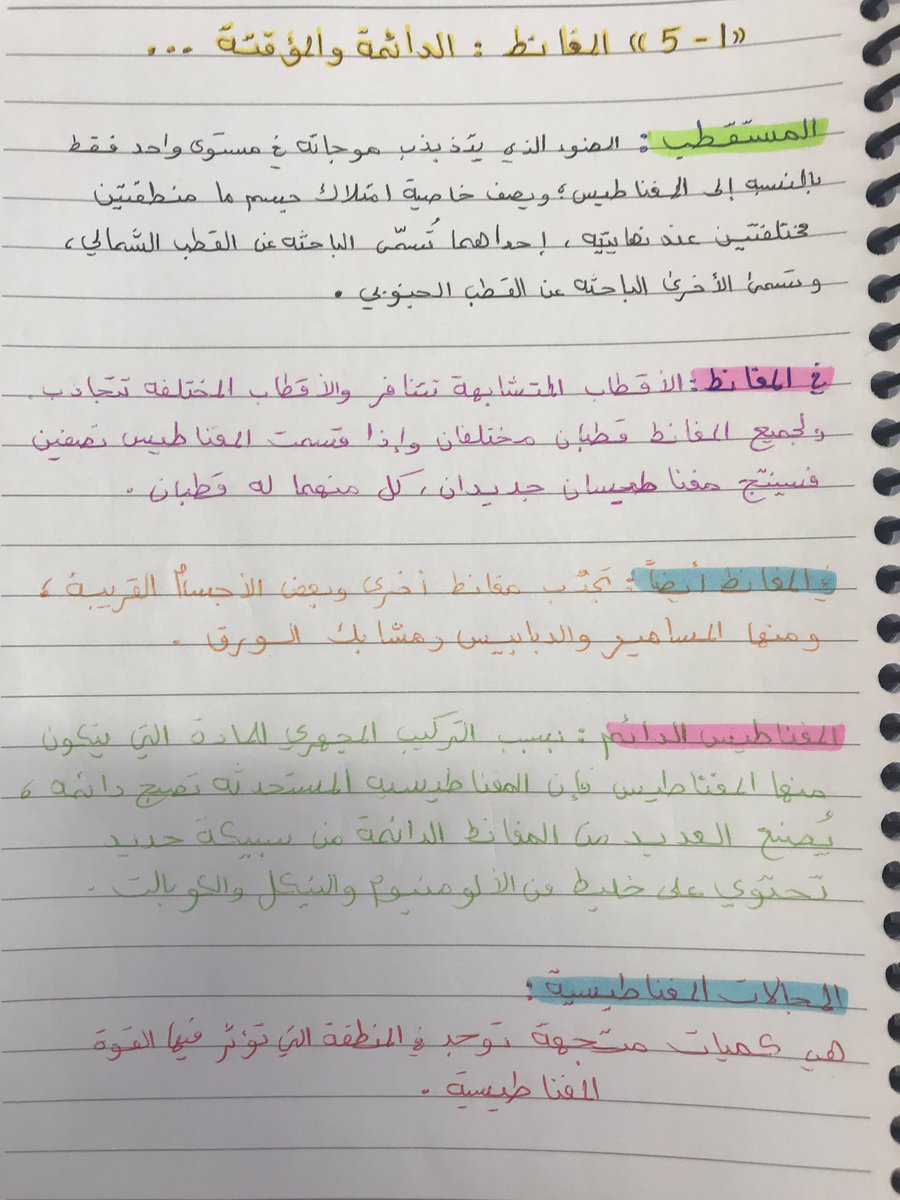 «1-5» المغانط : الدائمة والمؤقتة ...
المستقطب : الضوء الذي يتذبذب موجاته في مستوى واحد فقط
بالنسبه إلى المغناطيس؛ ويصف خاصية امتلاك جسم ما منطقتين
مختلفتين عند نهايتيه ، إحداهما تُسمّى الباحثه عن القطب الشمالي ،
وتسمى الأخرى الباحثه عن القطب الجنوبي .
في المغانط : الأقطاب المتشابهة تتنافر والأقطاب المختلفه تتجاذب .
ولجميع المغانط قطبان مختلفان وإذا قسمت المغناطيس نصفين
فسينتج مغناطيسان جديدان ، كل منهما له قطبان .
في المغانط أيضاً : تجذب مغانط أخرى وبعض الأجسام القريبة ،
ومنها المسامير والدبابيس ومشابك الورق .
المغناطيس الدائم : بسبب التركيب المجهري للمادة التي يتكون
منها المغناطيس فإن المغناطيسيه المستحدثه تصبح دائمه ،
يُصنع العديد من المغانط الدائمة من سبيكة حديد
تحتوي على خليط من الألومنيوم والنيكل والكوبالت .
المجالات المغناطيسية :
هي كميات متجهة توجد في المنطقة التي تؤثر فيها القوة
المغناطيسية .